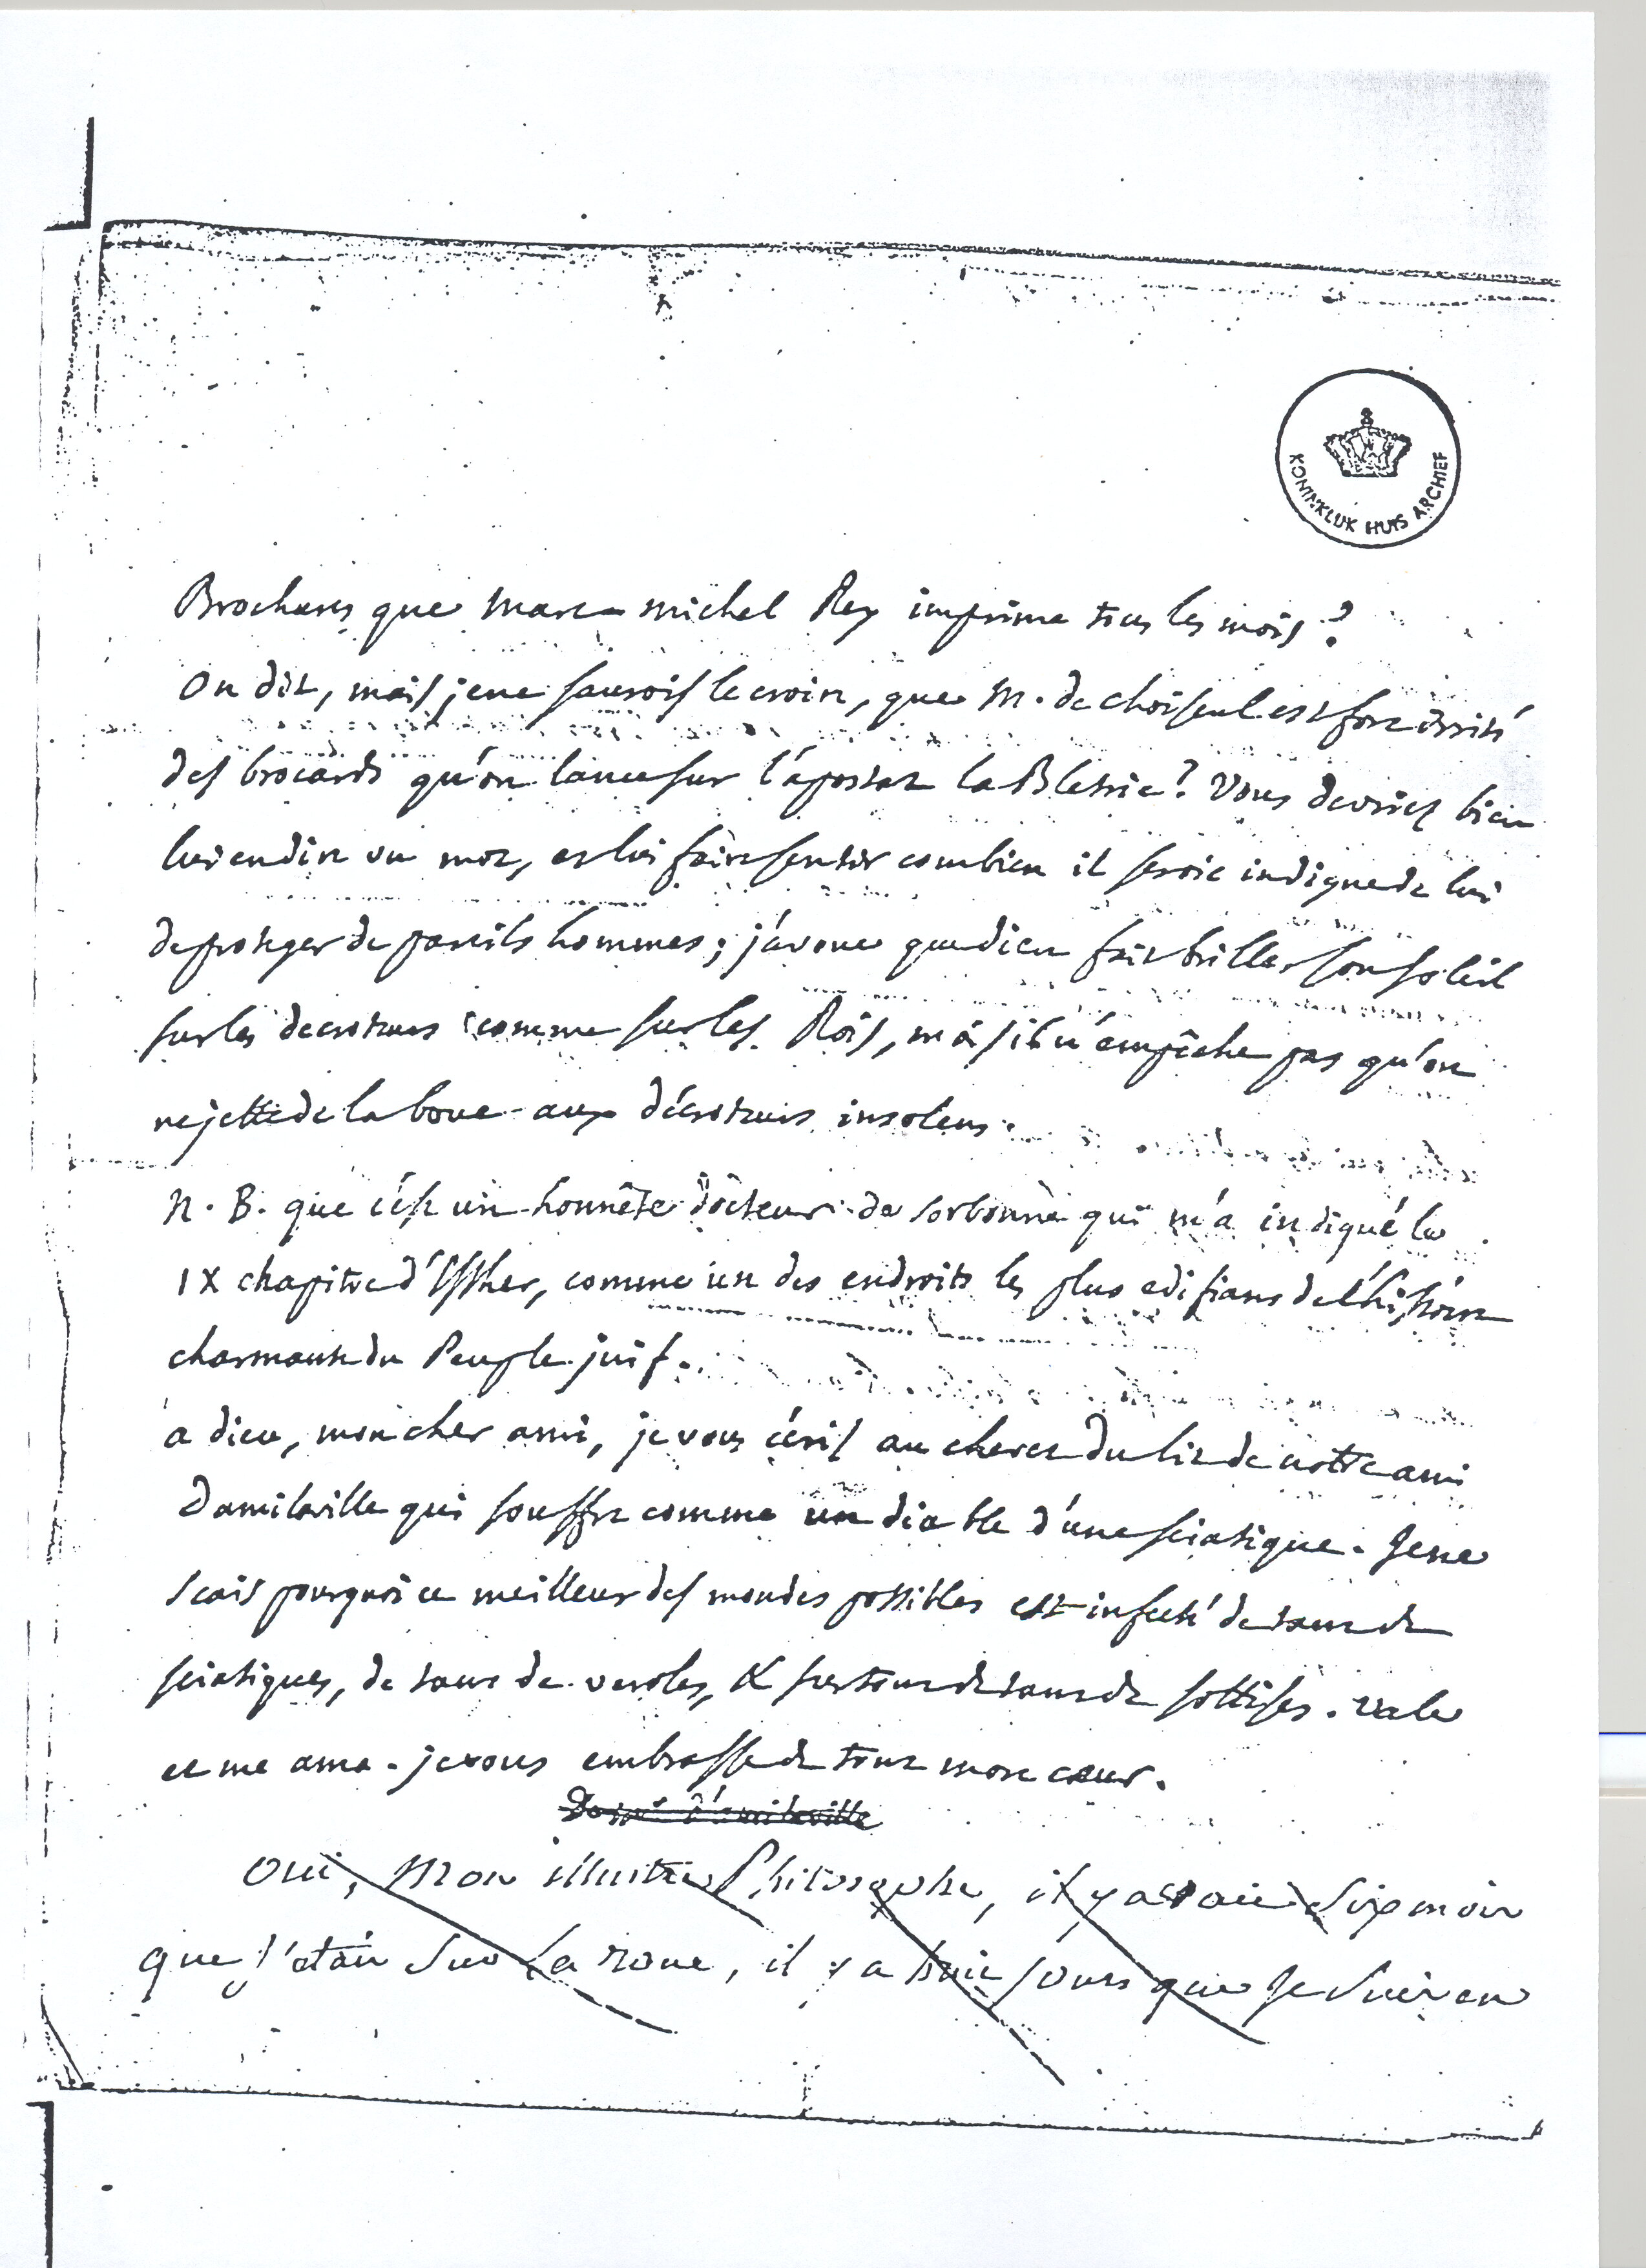 KONINKLIJK HUIS ARCHIEF
Brochures que Marc-michel Rey imprime tous les mois?
On dit, mais je ne saurois le croire, que M. de choiseul est fort irrité
des brocards qu'on lance sur l'apostat la Bletrie? Vous devriez bien
lui en dire un mot, et lui faire sentir combien il seroit indigne de lui
de proteger de pareils hommes; j'avoue que dieu fait briller son soleil
sur les decroteurs comme sur les Rois, mais il n'empêche pas qu'on
ne jette de la boue aux décroteurs insolens.
N. B. que c'est un honnête docteur de sorbonne qui m'a indiqué le
IX chapitre d'Esther, comme un des endroits les plus edifians de l'histoire
charmante du Peuple juif.
a dieu, mon cher ami, je vous écris au chevet du lit de notre ami
Damilaville qui souffre comme un diable d'une sciatique. Je ne
scais pourquoi ce meilleur des mondes possibles est infecté de tant de
sciatiques, de tant de veroles, & surtout de tant de sottises. Vale
et me ama. je vous embrasse de tout mon cœur.
De mr d'amilaville
Oui, Mon illustre Philosophe, il y avoit six mois
que j'étais sur la roue, il y a huit jours que je suis en